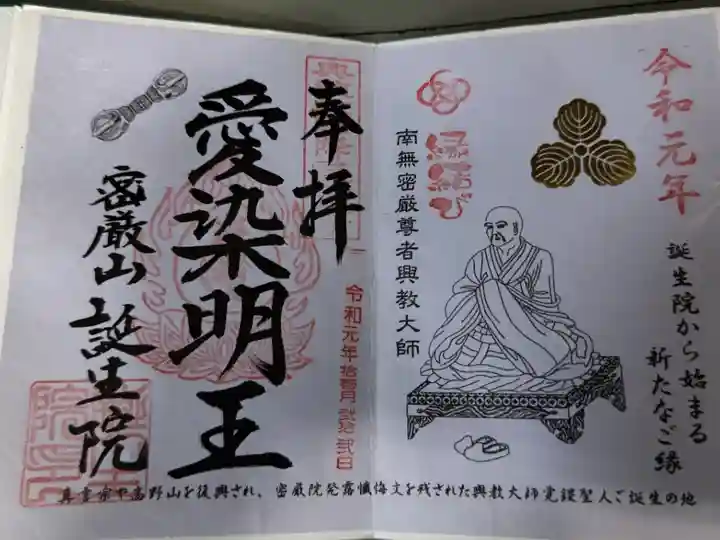 令和元年
誕生院から始まる
新たなご縁
縁結び
南無密厳尊者興教大師
奉拝
令和元年拾壱月弐拾弐日
愛染明王
密厳山 誕生院
真言宗や高野山を復興され、密厳院発露懺悔文を残された興教大師覚鑁聖人ご誕生の地